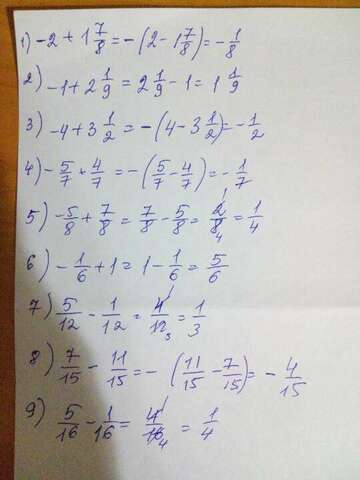 1) -2 + 1 7/8 = -(2 - 1 7/8) = -1/8
2) -1 + 2 1/9 = 2 1/9 - 1 = 1 1/9
3) -4 + 3 1/2 = -(4 - 3 1/2) = -1/2
4) -5/7 + 4/7 = -(5/7 - 4/7) = -1/7
5) -5/8 + 7/8 = 7/8 - 5/8 = 2 1/8 4 = 1/4
6) -1/6 + 1 = 1 - 1/6 = 5/6
7) 5/12 - 1/12 = 4 1/12 3 = 1/3
8) 7/15 - 11/15 = -(11/15 - 7/15) = -4/15
9) 5/16 - 1/16 = 4 1/16 4 = 1/4